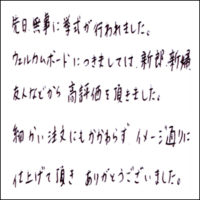 先日、無事に挙式が行われました。
ウェルカムボードにつきましては、新郎、新婦
友人などから高評価を頂きました。
細かい注文にもかかわらずイメージ通りに
仕上げて頂きありがとうございました。